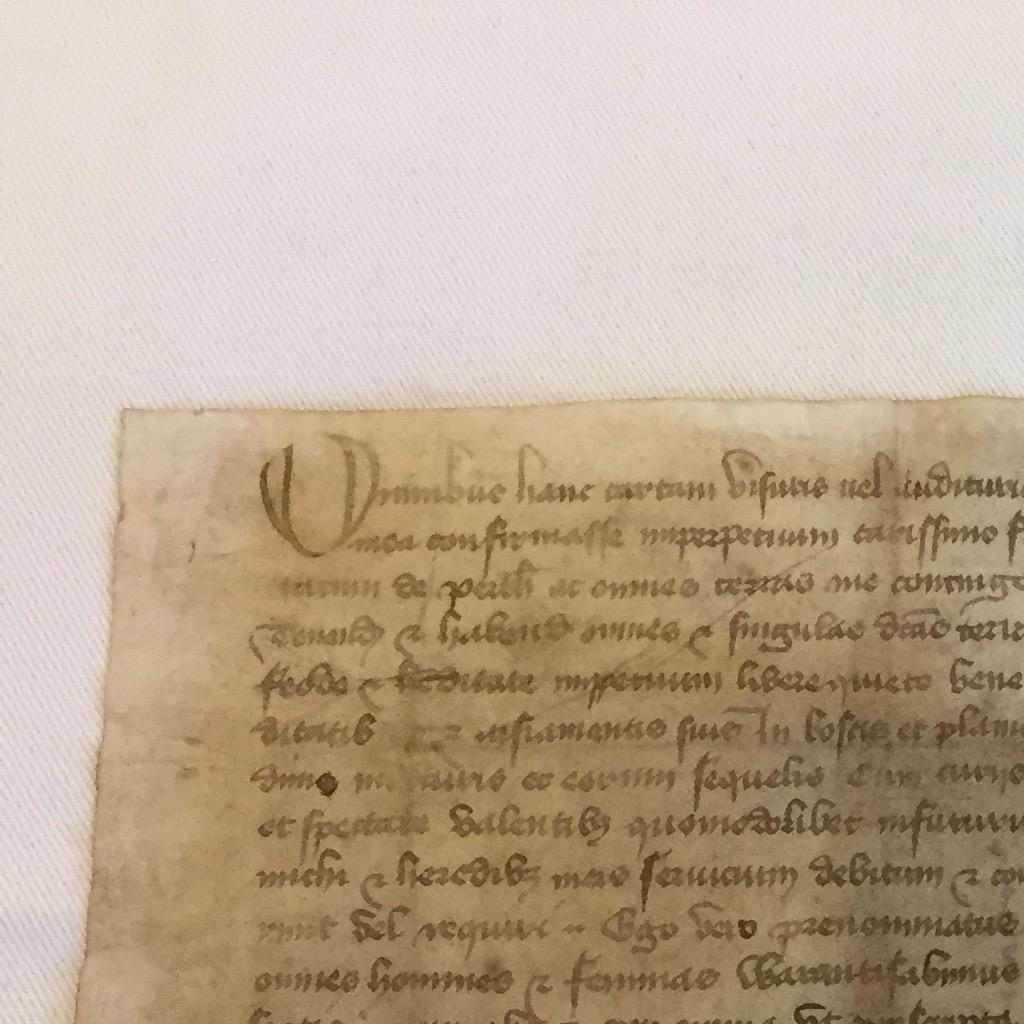 Omnibus hanc cartam visuris vel auditur
mea confirmasse imperpetuum carissimo f
de perth et omnes terras me conting
Tenend & habend omnes & singulas dcas terr
feodo & hditate imppetuum libere quiete bene
ditatis aisiamentis suis In boscis et plan
et eorum sequelis Cum curijs
et spectare valentibz quomodolibet infutur
michi & heredibz meis servicium debitum & co
vel requiri Ego vero prenominatus
omnes homines & feminas Warantizabimus